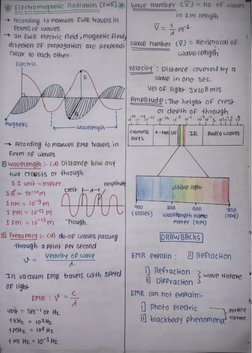 Electromagnetic Radiation (EMR)
→ According to maxwell EMR travels in
form of waves
→ In EMR electric field, magnetic field,
direction of propagation are perpendi
cular to each other.
Electric
magnetic
wavelength
→ According to maxwell EMR travels in
form of waves
① wavelength :- (λ) Distance b/w any
two crests or through
S.I. unit = meter.
1Å = 10⁻¹⁰ m
1 nm = 10⁻⁹ m
1 pm = 10⁻¹² m
Crest
Though
② Frequency :- (ν) No. of waves passing
through a point per second
ν = Velocity of wave
λ
In vaccum EMR travels with speed
of light
EMR : ν = c
λ
unit = sec⁻¹ or Hz
1 KHz = 10³ Hz
1 MHz = 10⁶ Hz
wave number (ν̅) = no of wave
in 1m length
ν̅ = 1 m⁻¹
λ
wave number (ν̅) = Reciprocal of
wave length
velocity : Distance covered by a
wave in one sec.
vel of light 3×10⁸ m/s
Amplitude : The height of crest
or depth of through
UV
IR
Radio waves
visible light
400
(violet)
600
800
(Red)
wavelength nano
meter (nm)
DRAWBACKS
EMR explain :
① Reflection
② Diffraction
wave nature
EMR can not explain:-
① Photo electric
② blackbody phenomena
nature